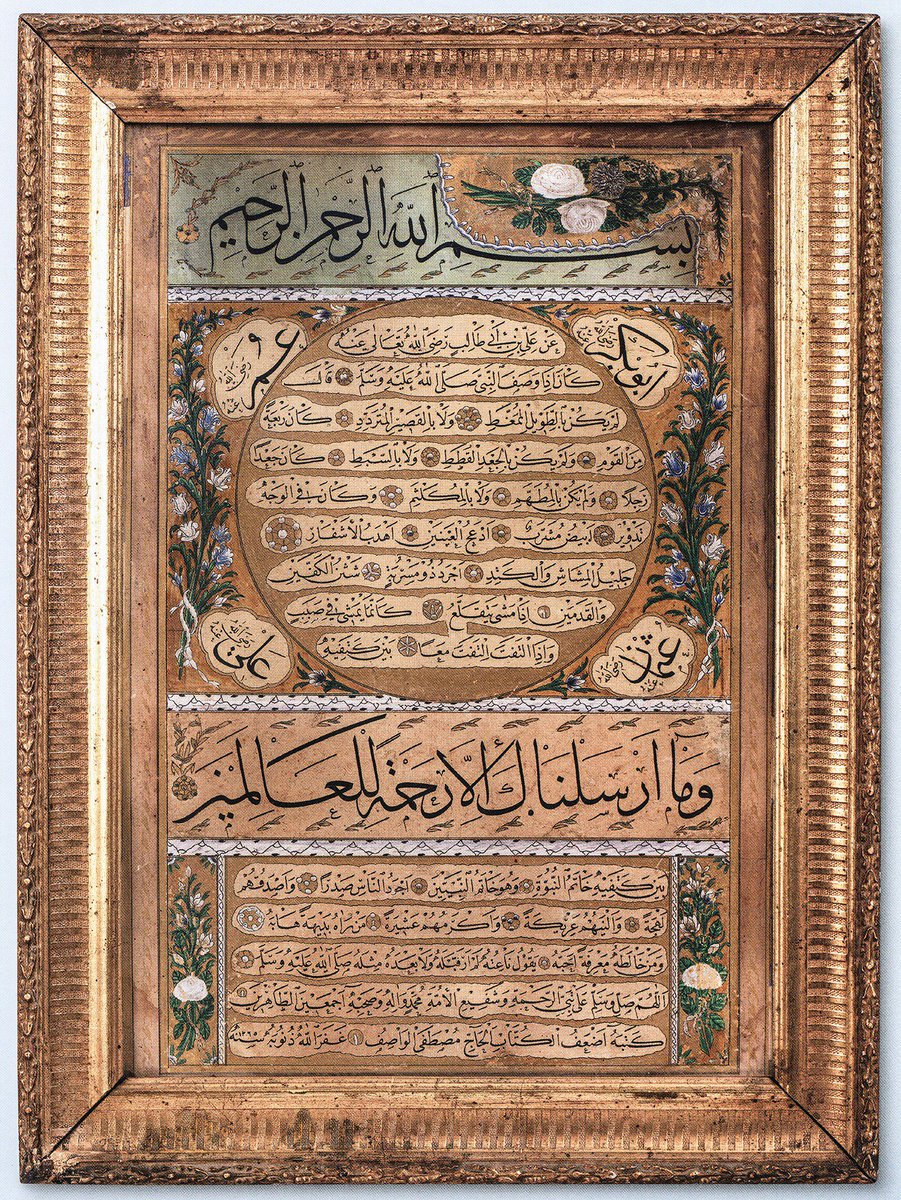 بسم الله الرحمن الرحيم
ابو بكر رضى الله عنه
عمر رضى الله عنه
عن علي بن ابي طالب رضى الله تعالى عنه
كان اذا وصف النبى صلى الله عليه وسلم قال
لم يكن بالطويل الممغط ولا بالقصير المتردد كان ربعة
من القوم ولم يكن بالجعد القطط ولا بالسبط كان جعدا
رجلا ولم يكن بالمطهم ولا بالمكلثم وكان فى الوجه
تدوير ابيض مشرب ادعج العينين اهدب الاشفار
جليل المشاش والكتد اجرد ذو مسربة شثن الكفين
والقدمين اذا مشى يتقلع كانما يمشى فى صبب
واذا التفت التفت معا بين كتفيه
عثمان رضى الله عنه
على رضى الله عنه
وما ارسلناك الا رحمة للعالمين
بين كتفيه خاتم النبوة وهو خاتم النبيين اجود الناس صدرا واصدقهم
لهجة والينهم عريكة واكرمهم عشيرة من راه بديهة هابه
ومن خالطه معرفة احبه يقول ناعته لم ار قبله ولا بعده مثله صلى الله عليه وسلم
اللهم صل وسلم على نبى الرحمة وشفيع الامة محمد واله وصحبه اجمعين الطاهرين
كتبه اضعف الكتاب الحاج مصطفى الواصف غفر الله ذنوبه سنه